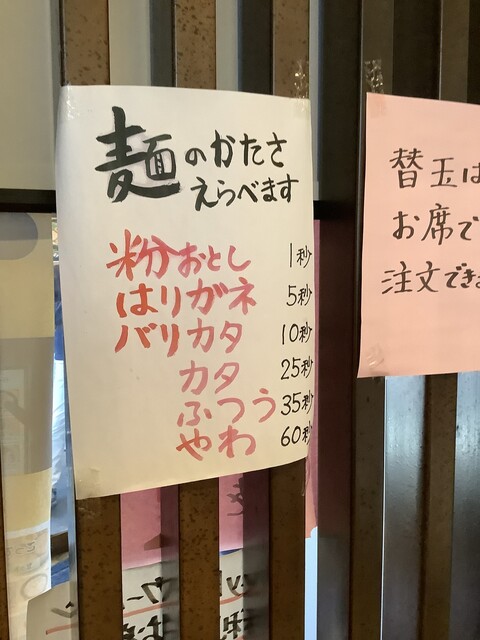 麺のかたさ
えらべます
粉おとし 1秒
はりガネ 5秒
バリカタ 10秒
カタ 25秒
ふつう 35秒
やわ 60秒
替玉は
お席で
注文でき